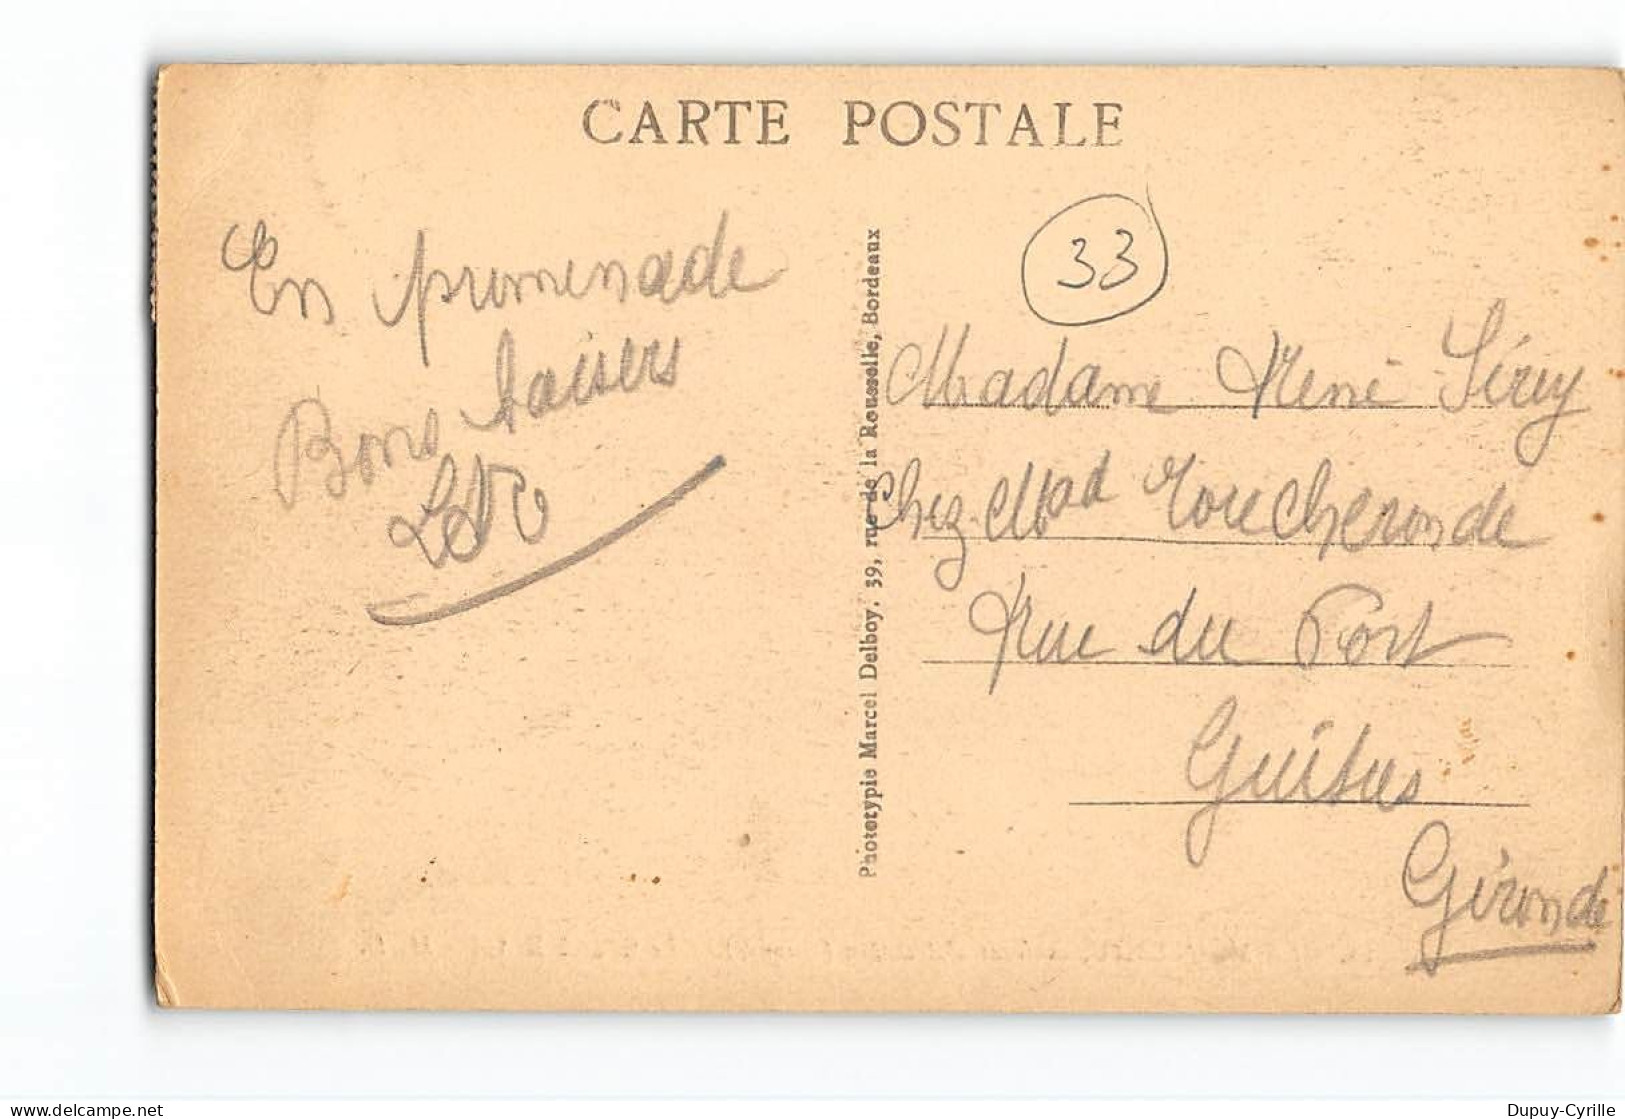 CARTE POSTALE
En promenade
Bons baisers
33
Phototypie Marcel Delboy, 39, rue de la Rousselle, Bordeaux
Madame René Séruy
Chez Mad Toucheronde
Rue du Port
Guîtres
Gironde
www.delcampe.net
Dupuy-Cyrille